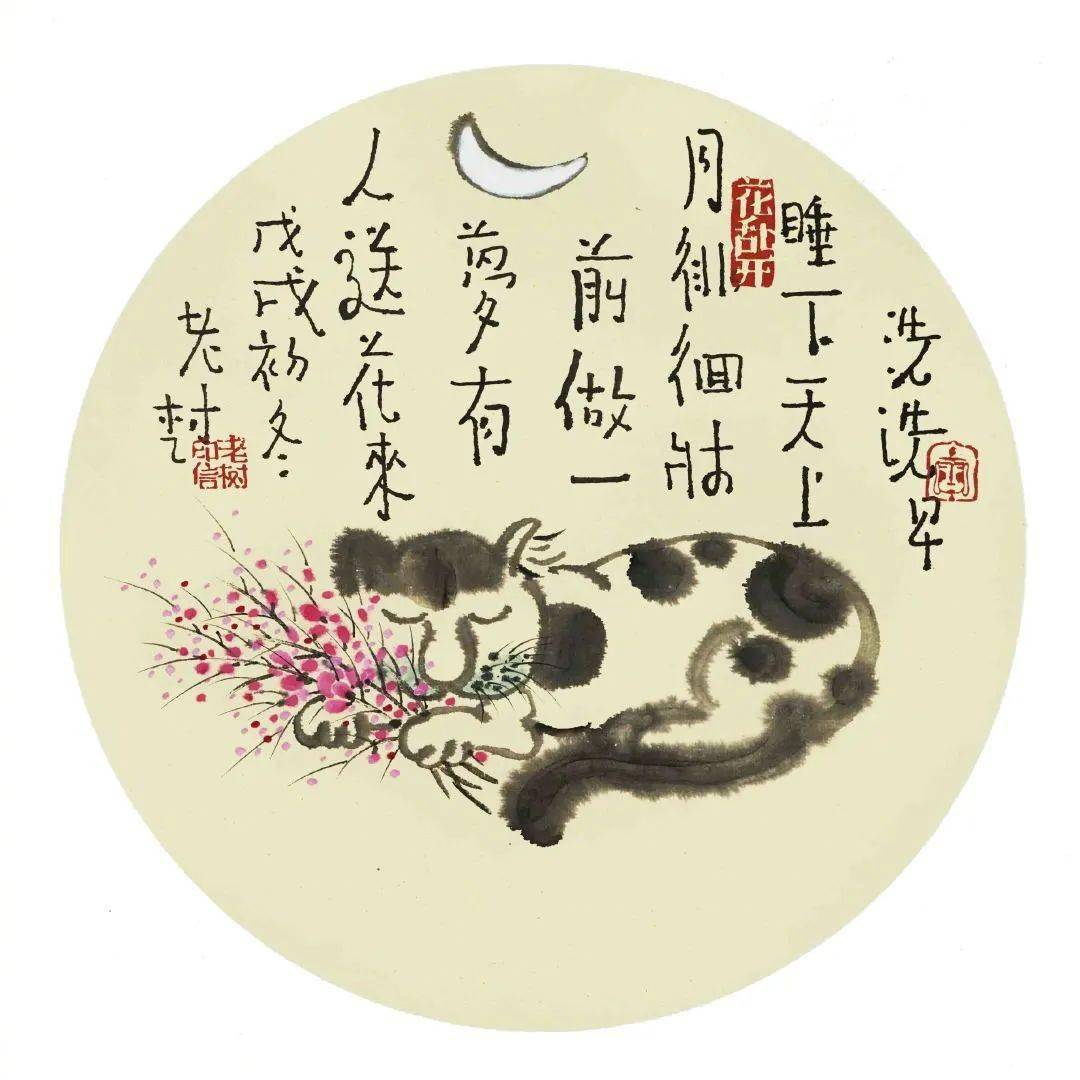 洗洗早
睡下天上
月徘徊牀
前做一
夢有
人送花來
戊戌初冬
老树
花乱开
老树印信